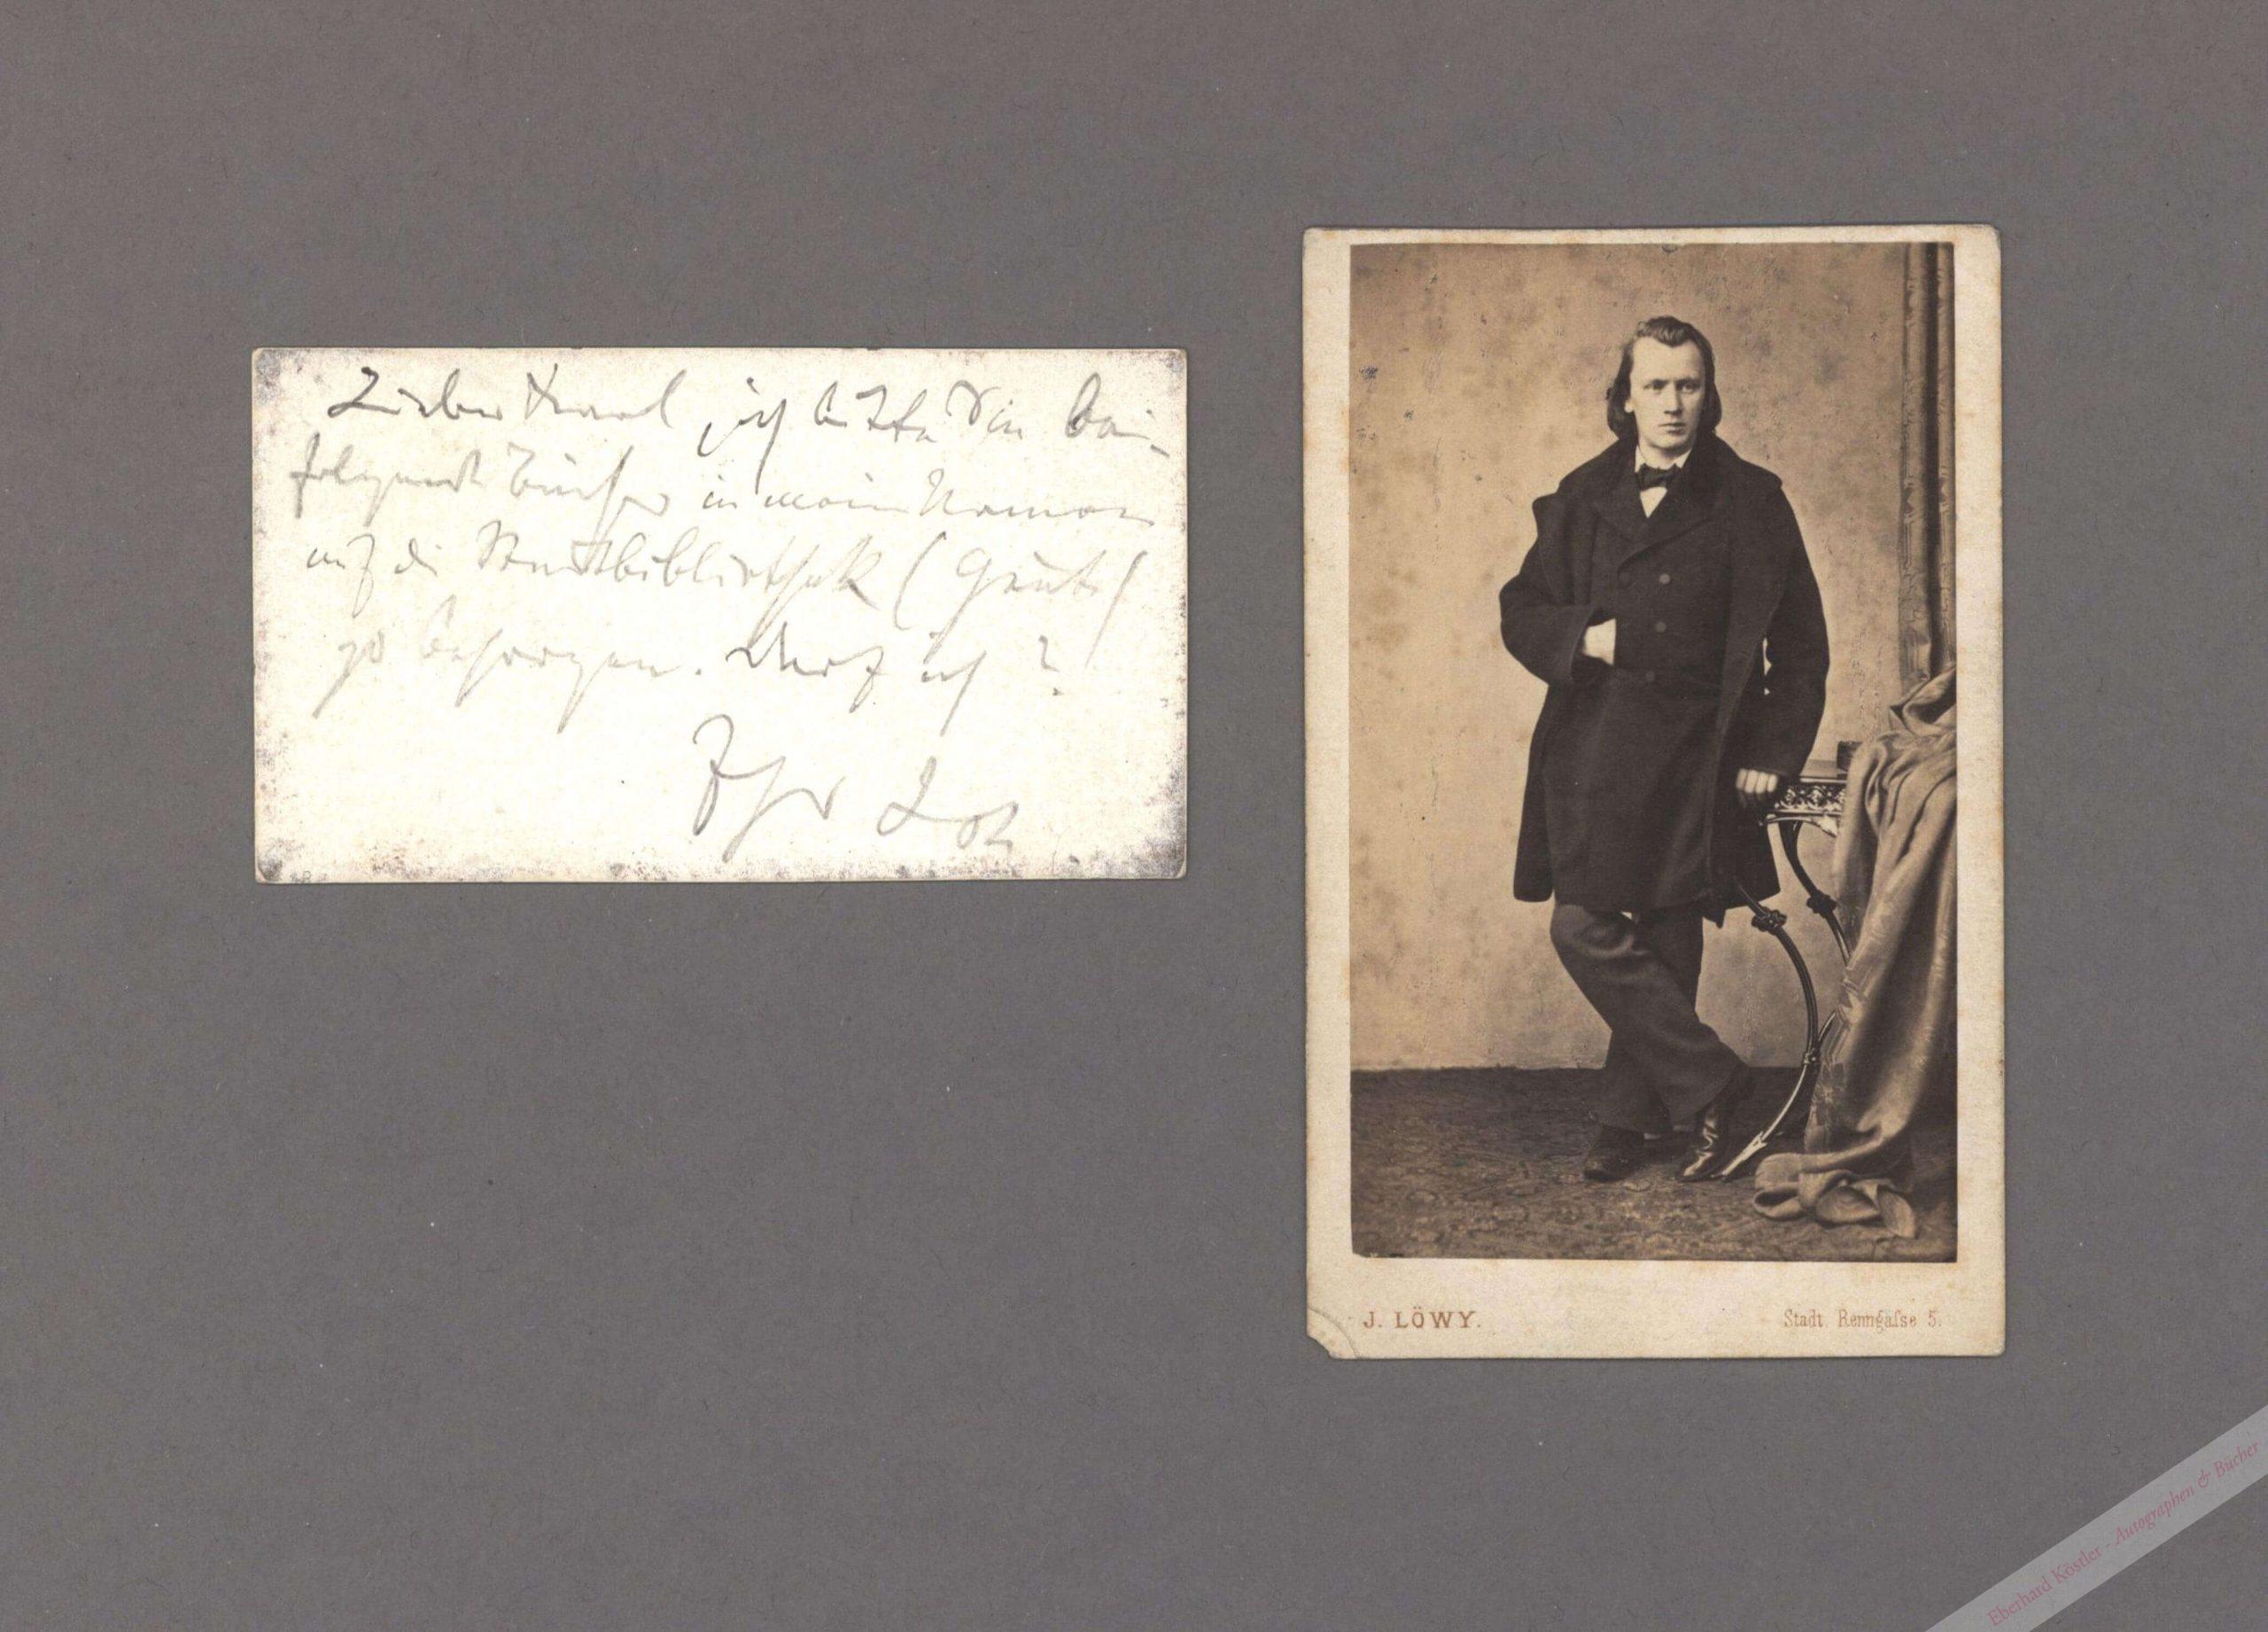 Lieber Kraal ich bitte Sie bei-
folgende Bücher in mein Namen
auf die Stadtbibliothek
zu besorgen. Darf ich?
Ihr
J. LÖWY.
Stadt. Renngaſse 5.
Eberhard Köstler - Autographen & Bücher